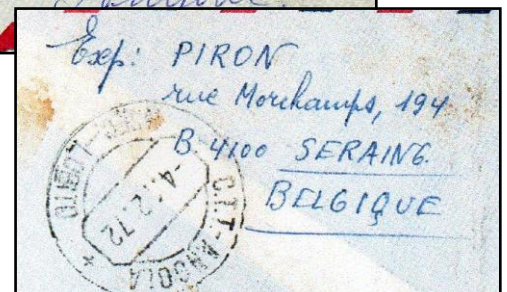 Exp: PIRON
rue Morchamps, 194
B. 4100 SERAING.
BELGIQUE
LOBITO
-4.12.72
C.T.T-ANGOLA